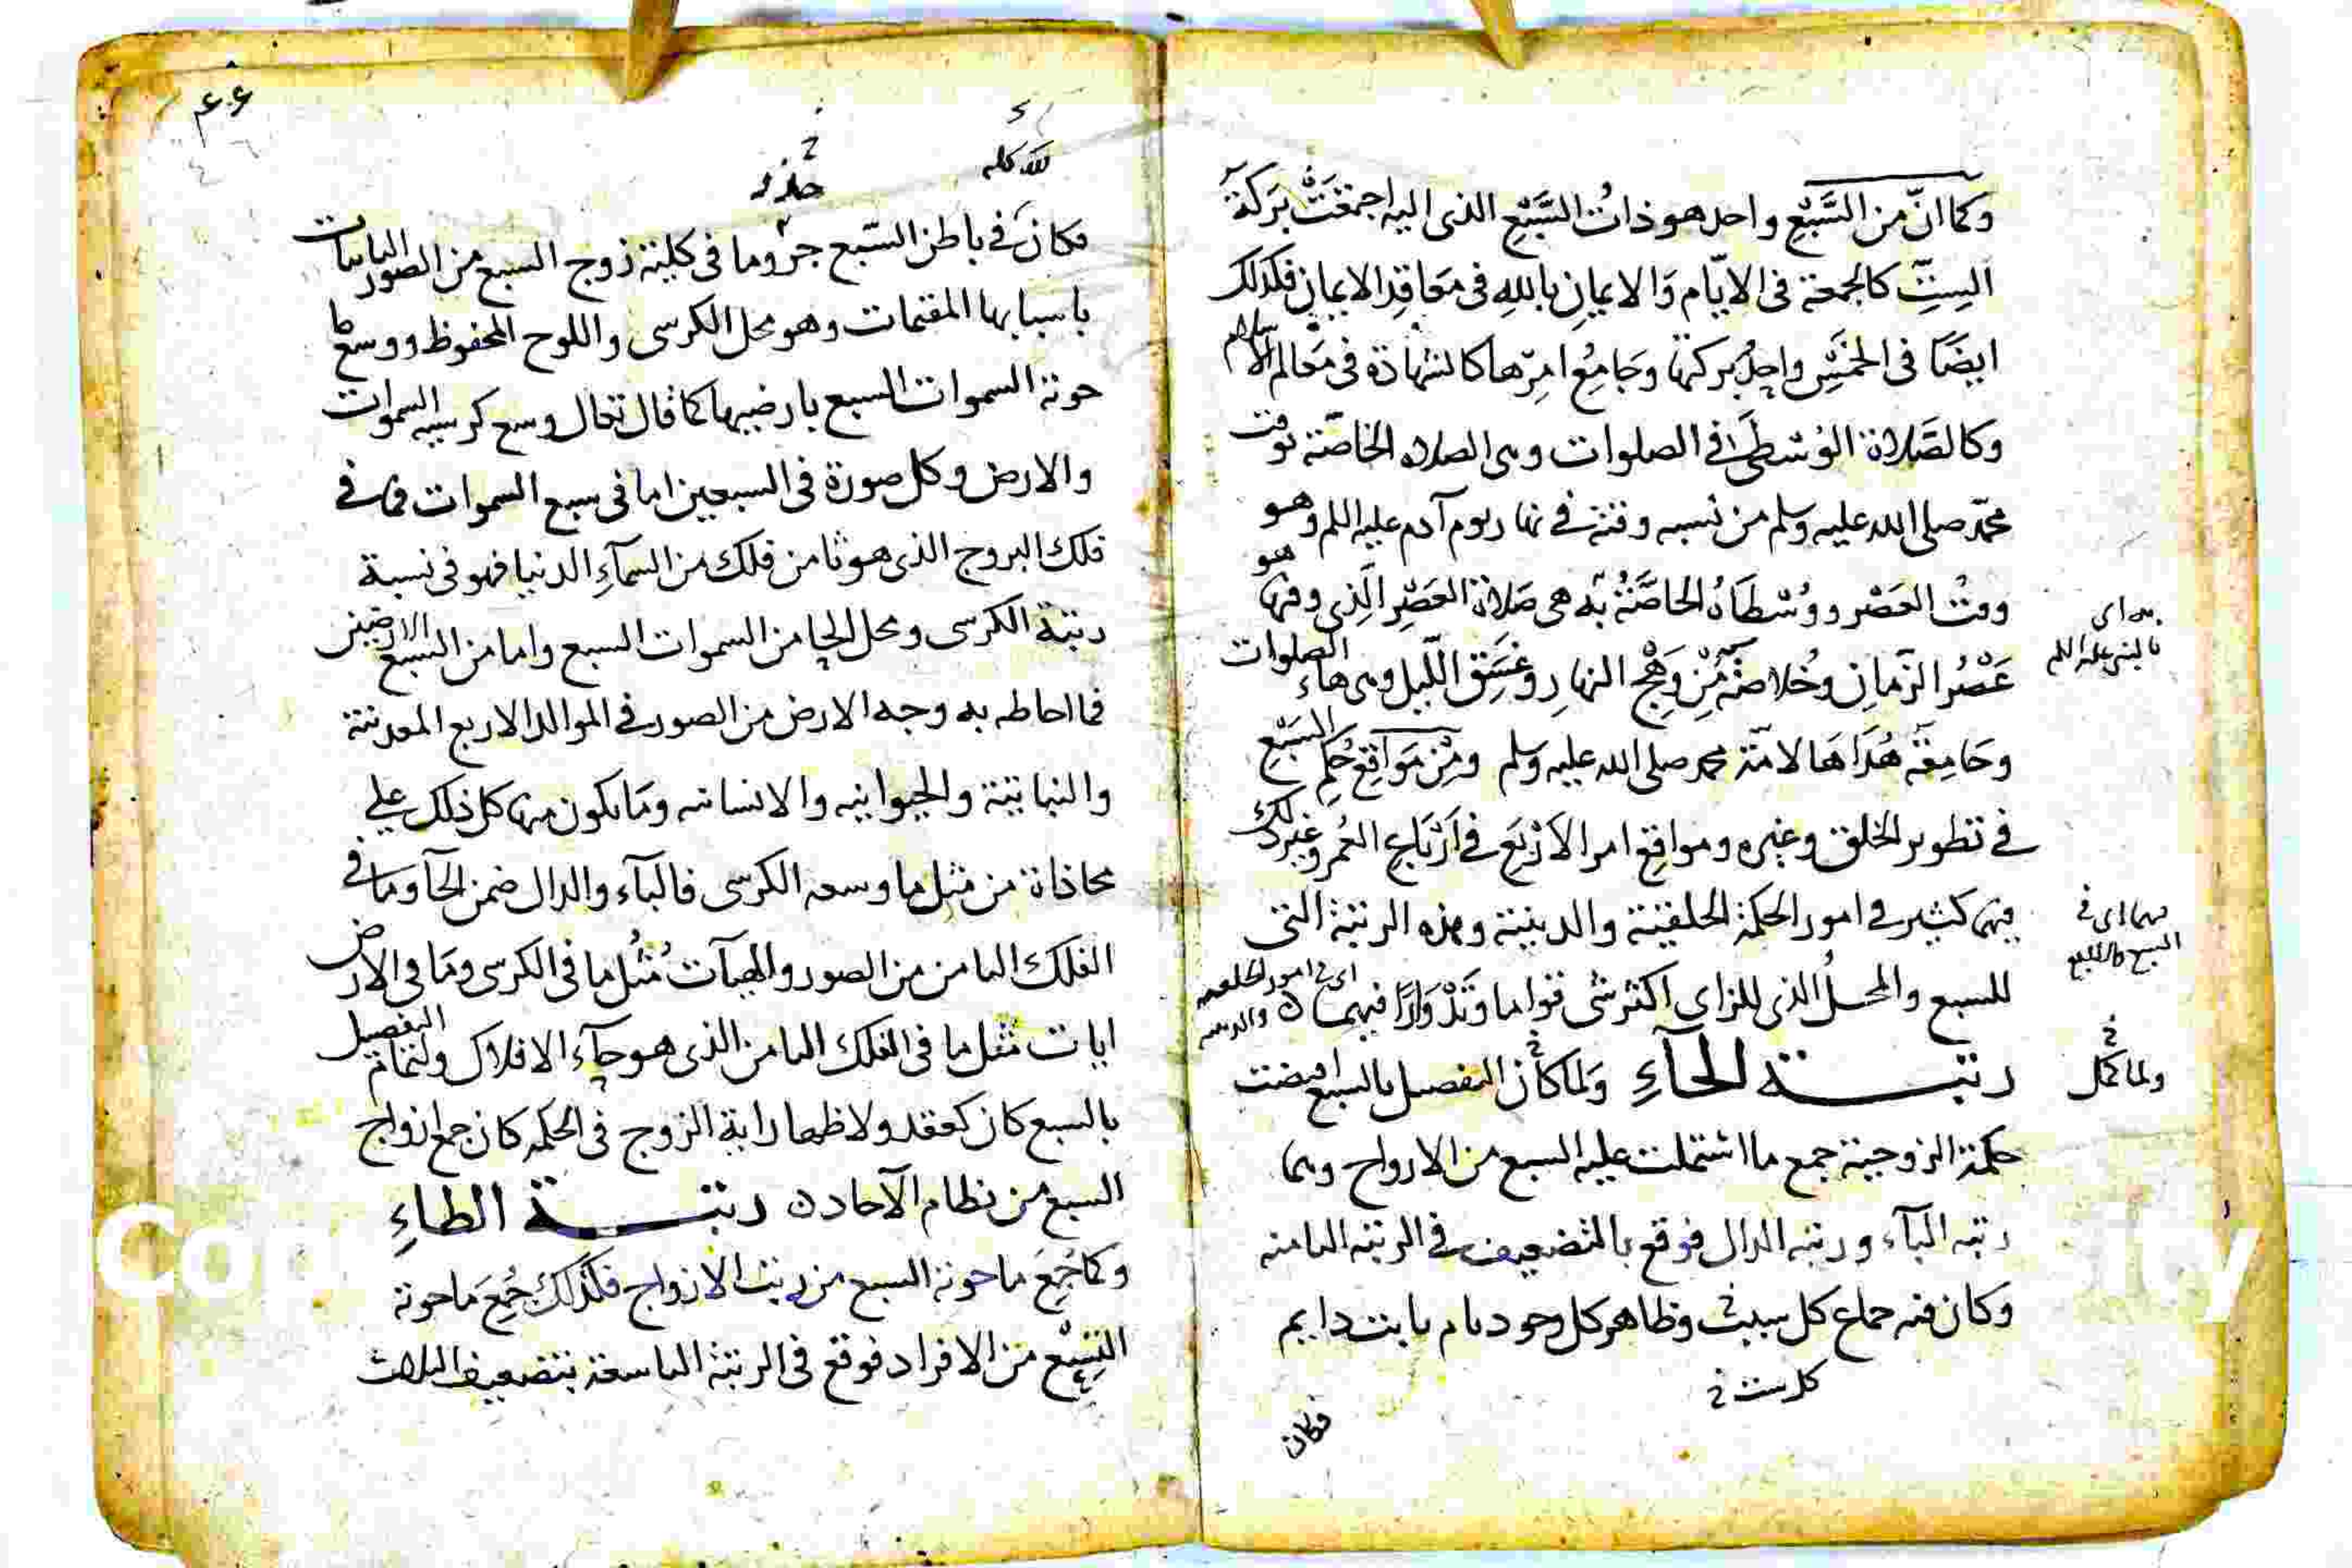 وكما انّ من السَّبْعِ واحد هو ذاتُ السَّبْعِ الذى اليه اجتمعَتْ بَركةُ
السِتِّ كالجمعة فى الايّام وَالايمانِ بالله فى مَعَاقِدِ الايمان فكذلك
ايضًا فى الخمْسِ واحِدُ بركتها وجَامِعُ امرها كالشهادة فى مَعَالم الاسلام
وكالصَّلاة الوُسْطَى فى الصلوات وهى الصلاه الخاصّة بوقت
محمّد صلى الله عليه وسلم من نسبه وقته فى نهار يوم آدم عليه السلم وهو
وقتُ العَصْر ووُسْطَاهُ الخاصَّةُ به هى صَلاة العَصْرِ الَّذِى وقتها هو
بـه اى
بالنبى عليه السلم
عَصْرُ الزّمانِ وخُلاصَةٌ مِنْ وَهَجِ النهارِ وغَسَقِ اللّيل وهى هاء الصلوات
وجَامِعَة هُدَاهَا لامّة محمد صلى الله عليه وسلم ومِنْ مَوَاقِع حُكم السَبْع
فى تطوير الخلق وغيره ومواقِع امر الاَرْبَع فى اَرْبَاع العُمر وغير ذلك
فيهما كثير فى امور الحكمة الخلقيّة والدينيّة وهذه الرتبة التى
فيهما اى فى
السبع
للسبع والمحلُ الذى للزاى اكثر شى قواما وَتَدْوَارًا فيهما
اى فى امور الخلقيه والدينيه
رتبة الحآءِ ولما كان التفصيل بالسبع اقتضت
ولما كمل
حكمة الزوجية جمع ما اشتملت عليه السبع من الازواج وهما
رتبه البآء ورتبه الدال فوقع بالتضعيف فى الرتبه الثامنه
وكان فيه جماع كل سبب وظاهر كل وجود تام ثابت دايم
فكان
لله كله
فكان فى باطن السّبع جزو ما فى كلية زوج السبع من الصور الثابتات
باسبابها المقتمات وهو محل الكرسى واللوح المحفوظ ووسع ما
حوته السموات السبع بارضيها كما قال تعالى وسع كرسيه السموات
والارض وكل صورة فى السبعين اما فى سبع السموات فما فى
فلك البروج الذى هو ثامن فلك من السمآءِ الدنيا فهو فى نسبة
رتبة الكرسى ومحل الحا من السموات السبع واما من السبع الارضين
فما احاطه به وجه الارض من الصور فى الموالد الاربع المعدنية
والنباتيّة والحيوانيه والانسانيه ومَا يكون منها كل ذلك على
محاذاة من مثل ما وسعه الكرسى فالبآء والدال ضمن الحآ وما فى
الفلك الثامن من الصور والهيآت مُثُل ما فى الكرسى ومَا فى الارض
ايات مثل ما فى الفلك الثامن الذى هو حآء الافلاك ولتمام التفصيل
بالسبع كان كعقد ولاظهار اية الزوج فى الحكمه كان جمع ازواج
السبع من نظام الآحاد رتبة الطاءِ
وكما جُمِعَ ما حوته السبع من رتب الازواج فكذلك جُمِعَ مَا حوته
التِسْع من الافراد فوقع فى الرتبة التاسعة بتضعيف الثلاث